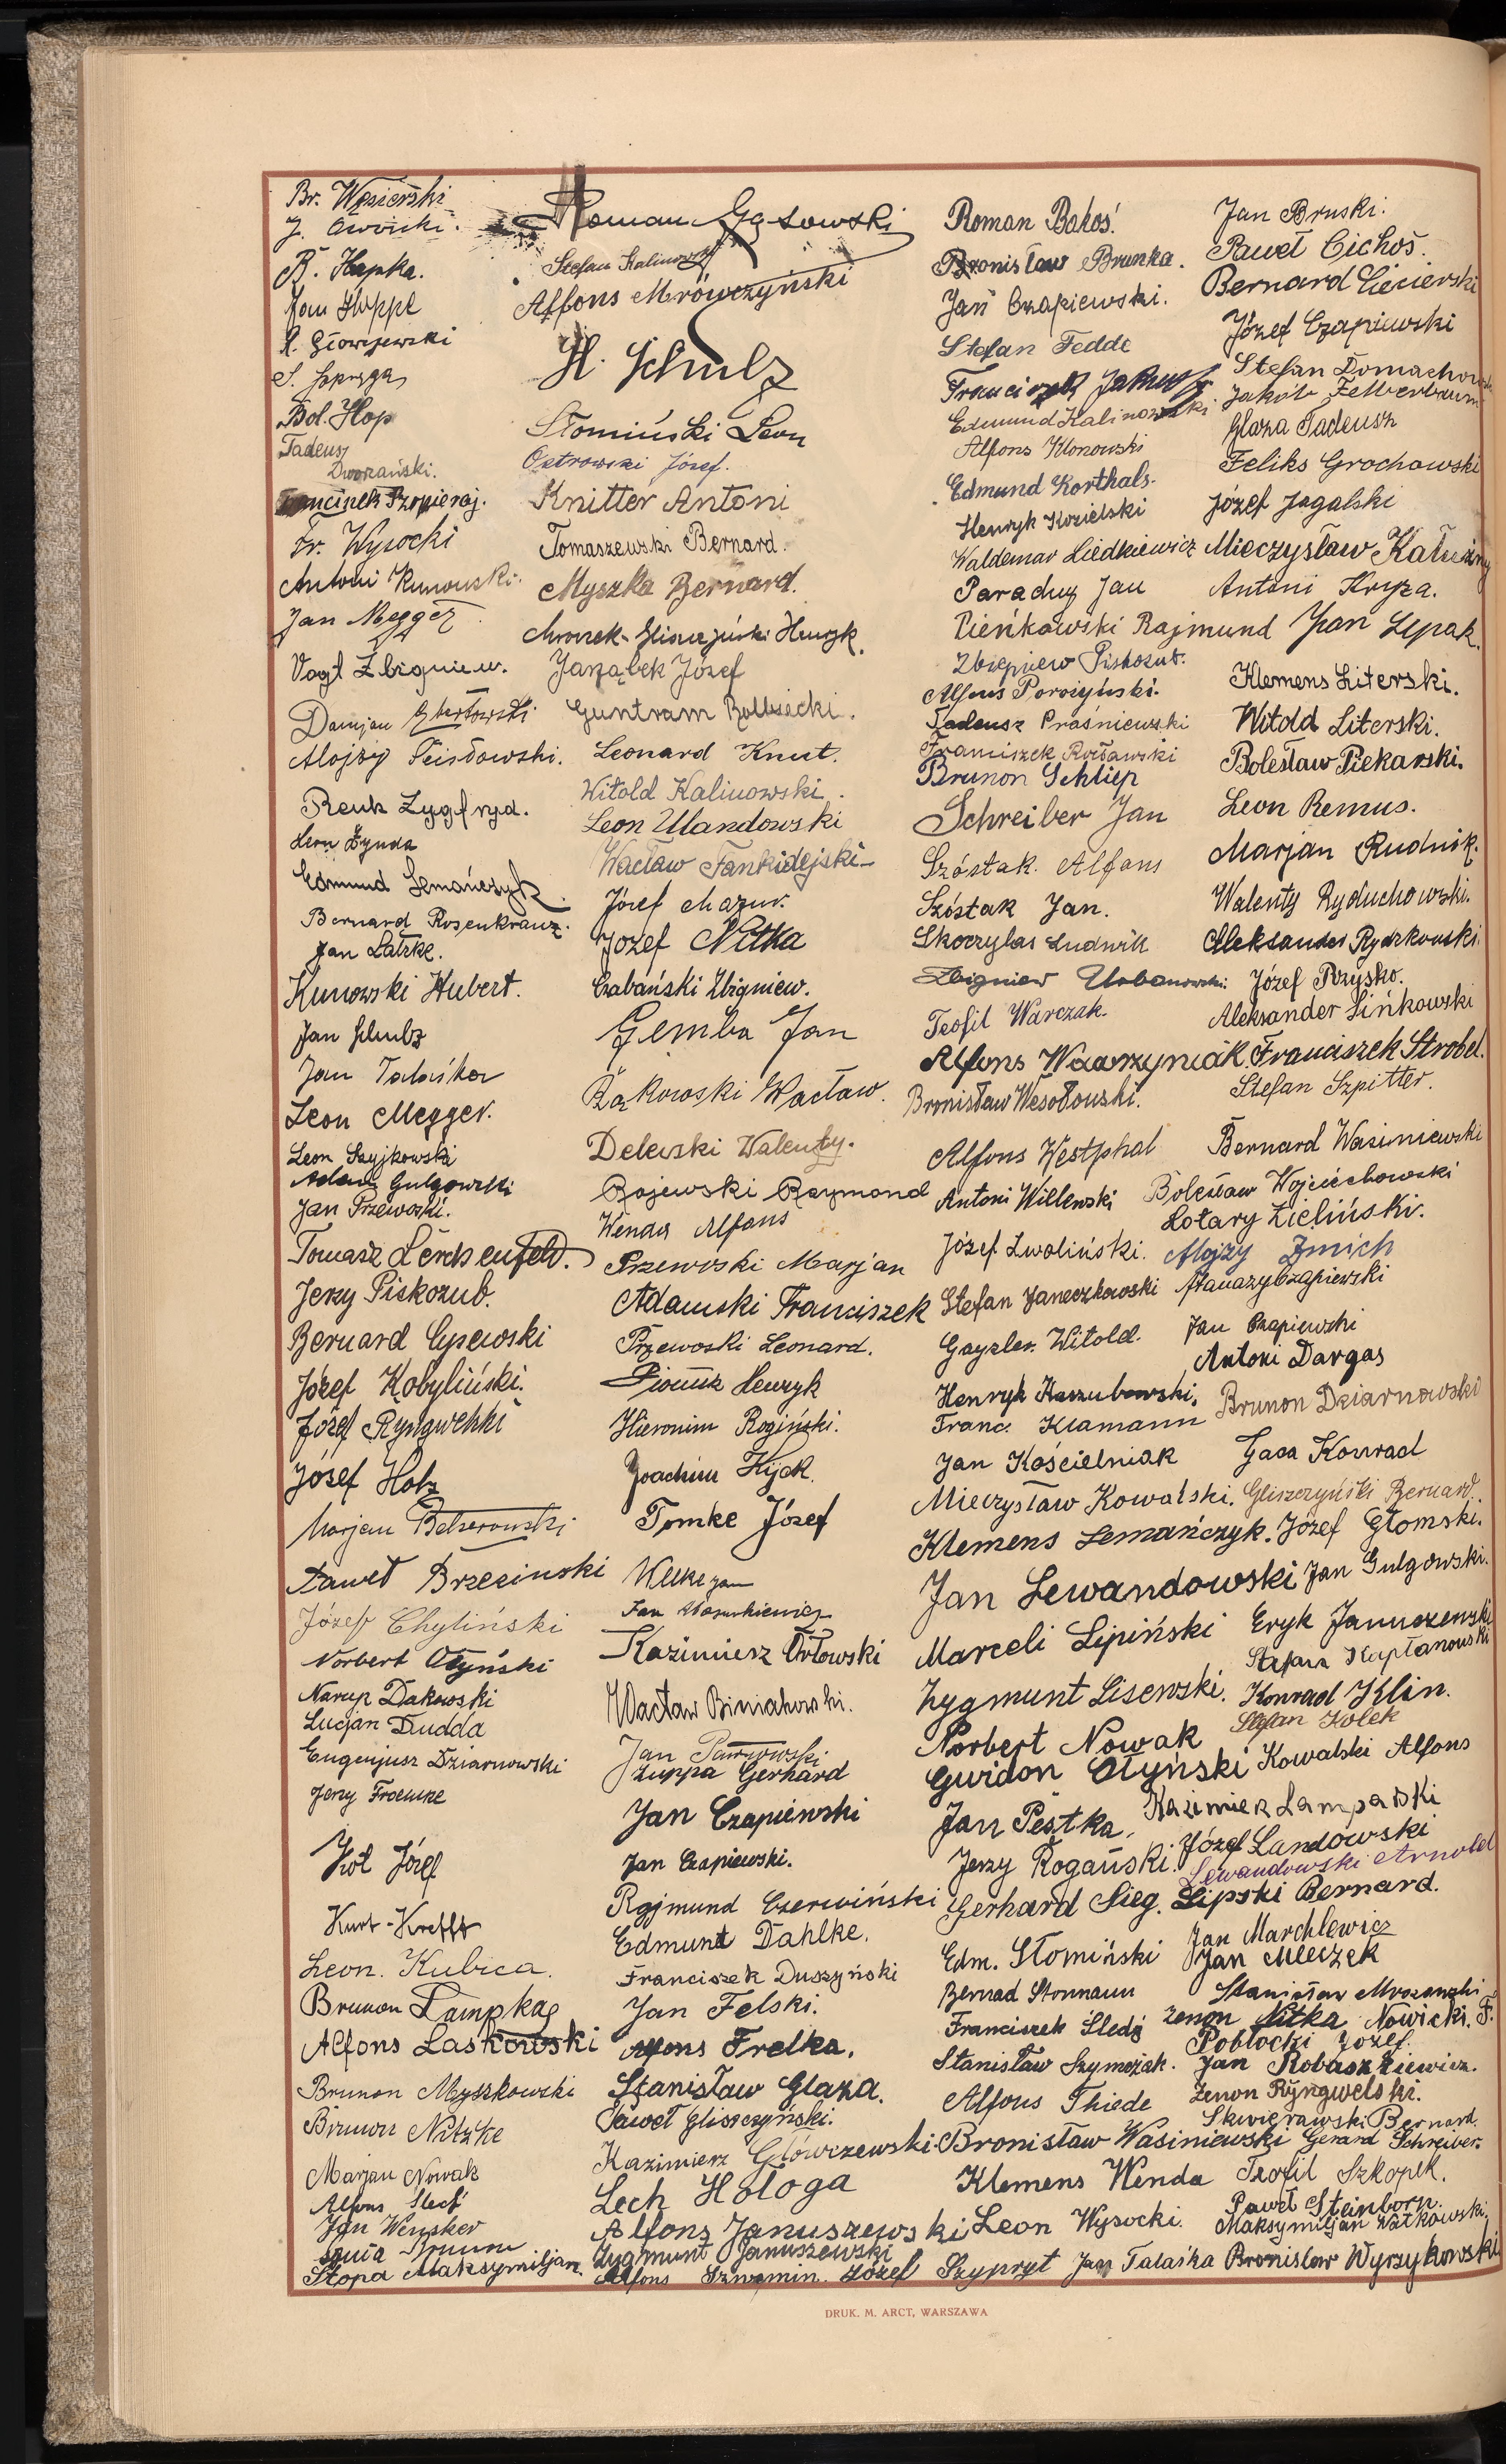 Br. Węsierski
R. Hapka.
Jan Huppe
Bol. Hop
Tadeusz
Dworzański.
Fr. Wysocki
Antoni Kunowski.
Jan Megger
Vogt Zbigniew.
Damjan
Alojzy
Renk Zygfryd.
Leon Żynda
Edmund Lemańczyk
Bernard Rosenkranz.
Jan Latzke.
Kunowski Hubert.
Jan
Jan Talaśka
Leon Megger.
Leon Szyjkowski
Adam Gulgowski
Jan Przewoski.
Tomasz Lerchenfeld.
Jerzy Piskozub.
Bernard Cysewski
Józef Kobyliński.
Józef Ryngwelski
Józef Holz
Marjan
Paweł Brzeziński
Józef Chyliński
Norbert Ołyński
Dakowski
Lucjan Dudda
Eugenjusz Dziarnowski
Jerzy
Kot Józef
Kurt-Krefft
Leon. Kubica.
Brunon Lampka
Alfons Laskowski
Brunon Myszkowski
Brunon Nitzke
Marjan Nowak
Alfons
Jan Wensker
Stopa Maksymiljan.
Roman Gąsowski
Stefan Kalinowski
Alfons Mrówczyński
H. Schulz
Słomiński Leon
Ostrowski Józef.
Knitter Antoni
Tomaszewski Bernard.
Myszka Bernard.
Mrozek-Gliszczyński Henryk.
Jarząbek Józef
Guntram
Leonard Knut.
Witold Kalinowski.
Leon Ulandowski
Wacław Fankidejski
Józef Mazur.
Józef Nitka
Czabański Zbigniew.
Gemba Jan
Bąkowski Wacław.
Delewski Walenty.
Rajewski Raymond
Wenda Alfons
Przewoski Marjan
Adamski Franciszek
Przewoski Leonard.
Henryk
Hieronim Rogiński.
Joachim Kijek.
Tomke Józef
Jan
Jan
Kazimierz Orłowski
Wacław Biniakowski.
Jan
Zuppa Gerhard
Jan Czapiewski
Jan Czapiewski.
Rajmund Czerwiński
Edmund Dahlke.
Franciszek Duszyński
Jan Felski.
Alfons Frelka.
Stanisław Glaza.
Paweł Gliszczyński.
Kazimierz Główczewski.
Lech Hologa
Alfons Januszewski
Zygmunt Januszewski
Alfons Szwemin. Józef Szypryt
Roman Bakoś.
Bronisław Brunka.
Jan Czapiewski.
Stefan Fedde
Franciszek
Edmund Kalinowski.
Alfons Klonowski
Edmund Korthals.
Henryk Kozielski
Waldemar Liedkiewicz
Paraduz Jan
Pieńkowski Rajmund
Zbigniew Piskozub.
Alfons
Tadeusz Praśniewski
Franciszek
Brunon Schliep
Schreiber Jan
Szóstak. Alfons
Szóstak Jan.
Skoczylas Ludwik
Zbigniew Urbanowski.
Teofil Warczak.
Alfons Wawrzyniak.
Bronisław Wesołowski.
Alfons Westphal
Antoni Willewski
Józef Zwoliński.
Stefan Janeczkowski
Gayzler. Witold.
Henryk Kaszubowski.
Franc. Klamann
Jan Kościelniak
Mieczysław Kowalski.
Klemens Lemańczyk.
Jan Lewandowski
Marceli Lipiński
Zygmunt Lisewski.
Norbert Nowak
Gwidon Ołyński
Jan Pestka.
Jerzy Rogański.
Gerhard Sieg.
Edm. Słomiński
Bernad Stormann
Franciszek Śledź
Stanisław Szymczak.
Alfons Thiede
Bronisław Wasiniewski
Klemens Wenda
Leon Wysocki.
Jan Talaśka
Jan Bruski.
Paweł Cichoś.
Bernard Ciecierski
Józef Czapiewski
Stefan
Jakób Felberbaum
Glaza Tadeusz
Feliks Grochowski
Józef Jagalski
Mieczysław Kałużny
Antoni Kryza.
Jan Lepak.
Klemens Literski.
Witold Literski.
Bolesław Piekarski.
Leon Remus.
Marjan Rudnik.
Walenty Ryduchowski.
Aleksander Rydzkowski.
Józef Rzysko.
Aleksander Sińkowski
Franciszek Strobel.
Stefan Szpitter.
Bernard Wasiniewski
Bolesław Wojciechowski
Lotary Zieliński.
Alojzy Zmich
Atanazy Czapiewski
Jan Czapiewski
Antoni Dargas
Brunon Dziarnowski
Gaca Konrad
Gliszczyński Bernard.
Józef Głomski.
Jan Gulgowski.
Eryk Januszewski
Stefan Kapłanowski
Konrad Klin.
Stefan Kolek
Kowalski Alfons
Kazimierz Lamparski
Józef Landowski
Lewandowski Arnold
Lipski Bernard.
Jan Marchlewicz
Jan Mleczek
Stanisław
Zenon Nitka Nowicki. F.
Pobłocki Józef.
Jan Robaszkiewicz.
Zenon Ryngwelski.
Skwierawski Bernard.
Gerard Schreiber.
Teofil Szkopek.
Paweł Steinborn.
Maksymiljan Watkowski.
Bronisław Wyrzykowski
DRUK. M. ARCT, WARSZAWA